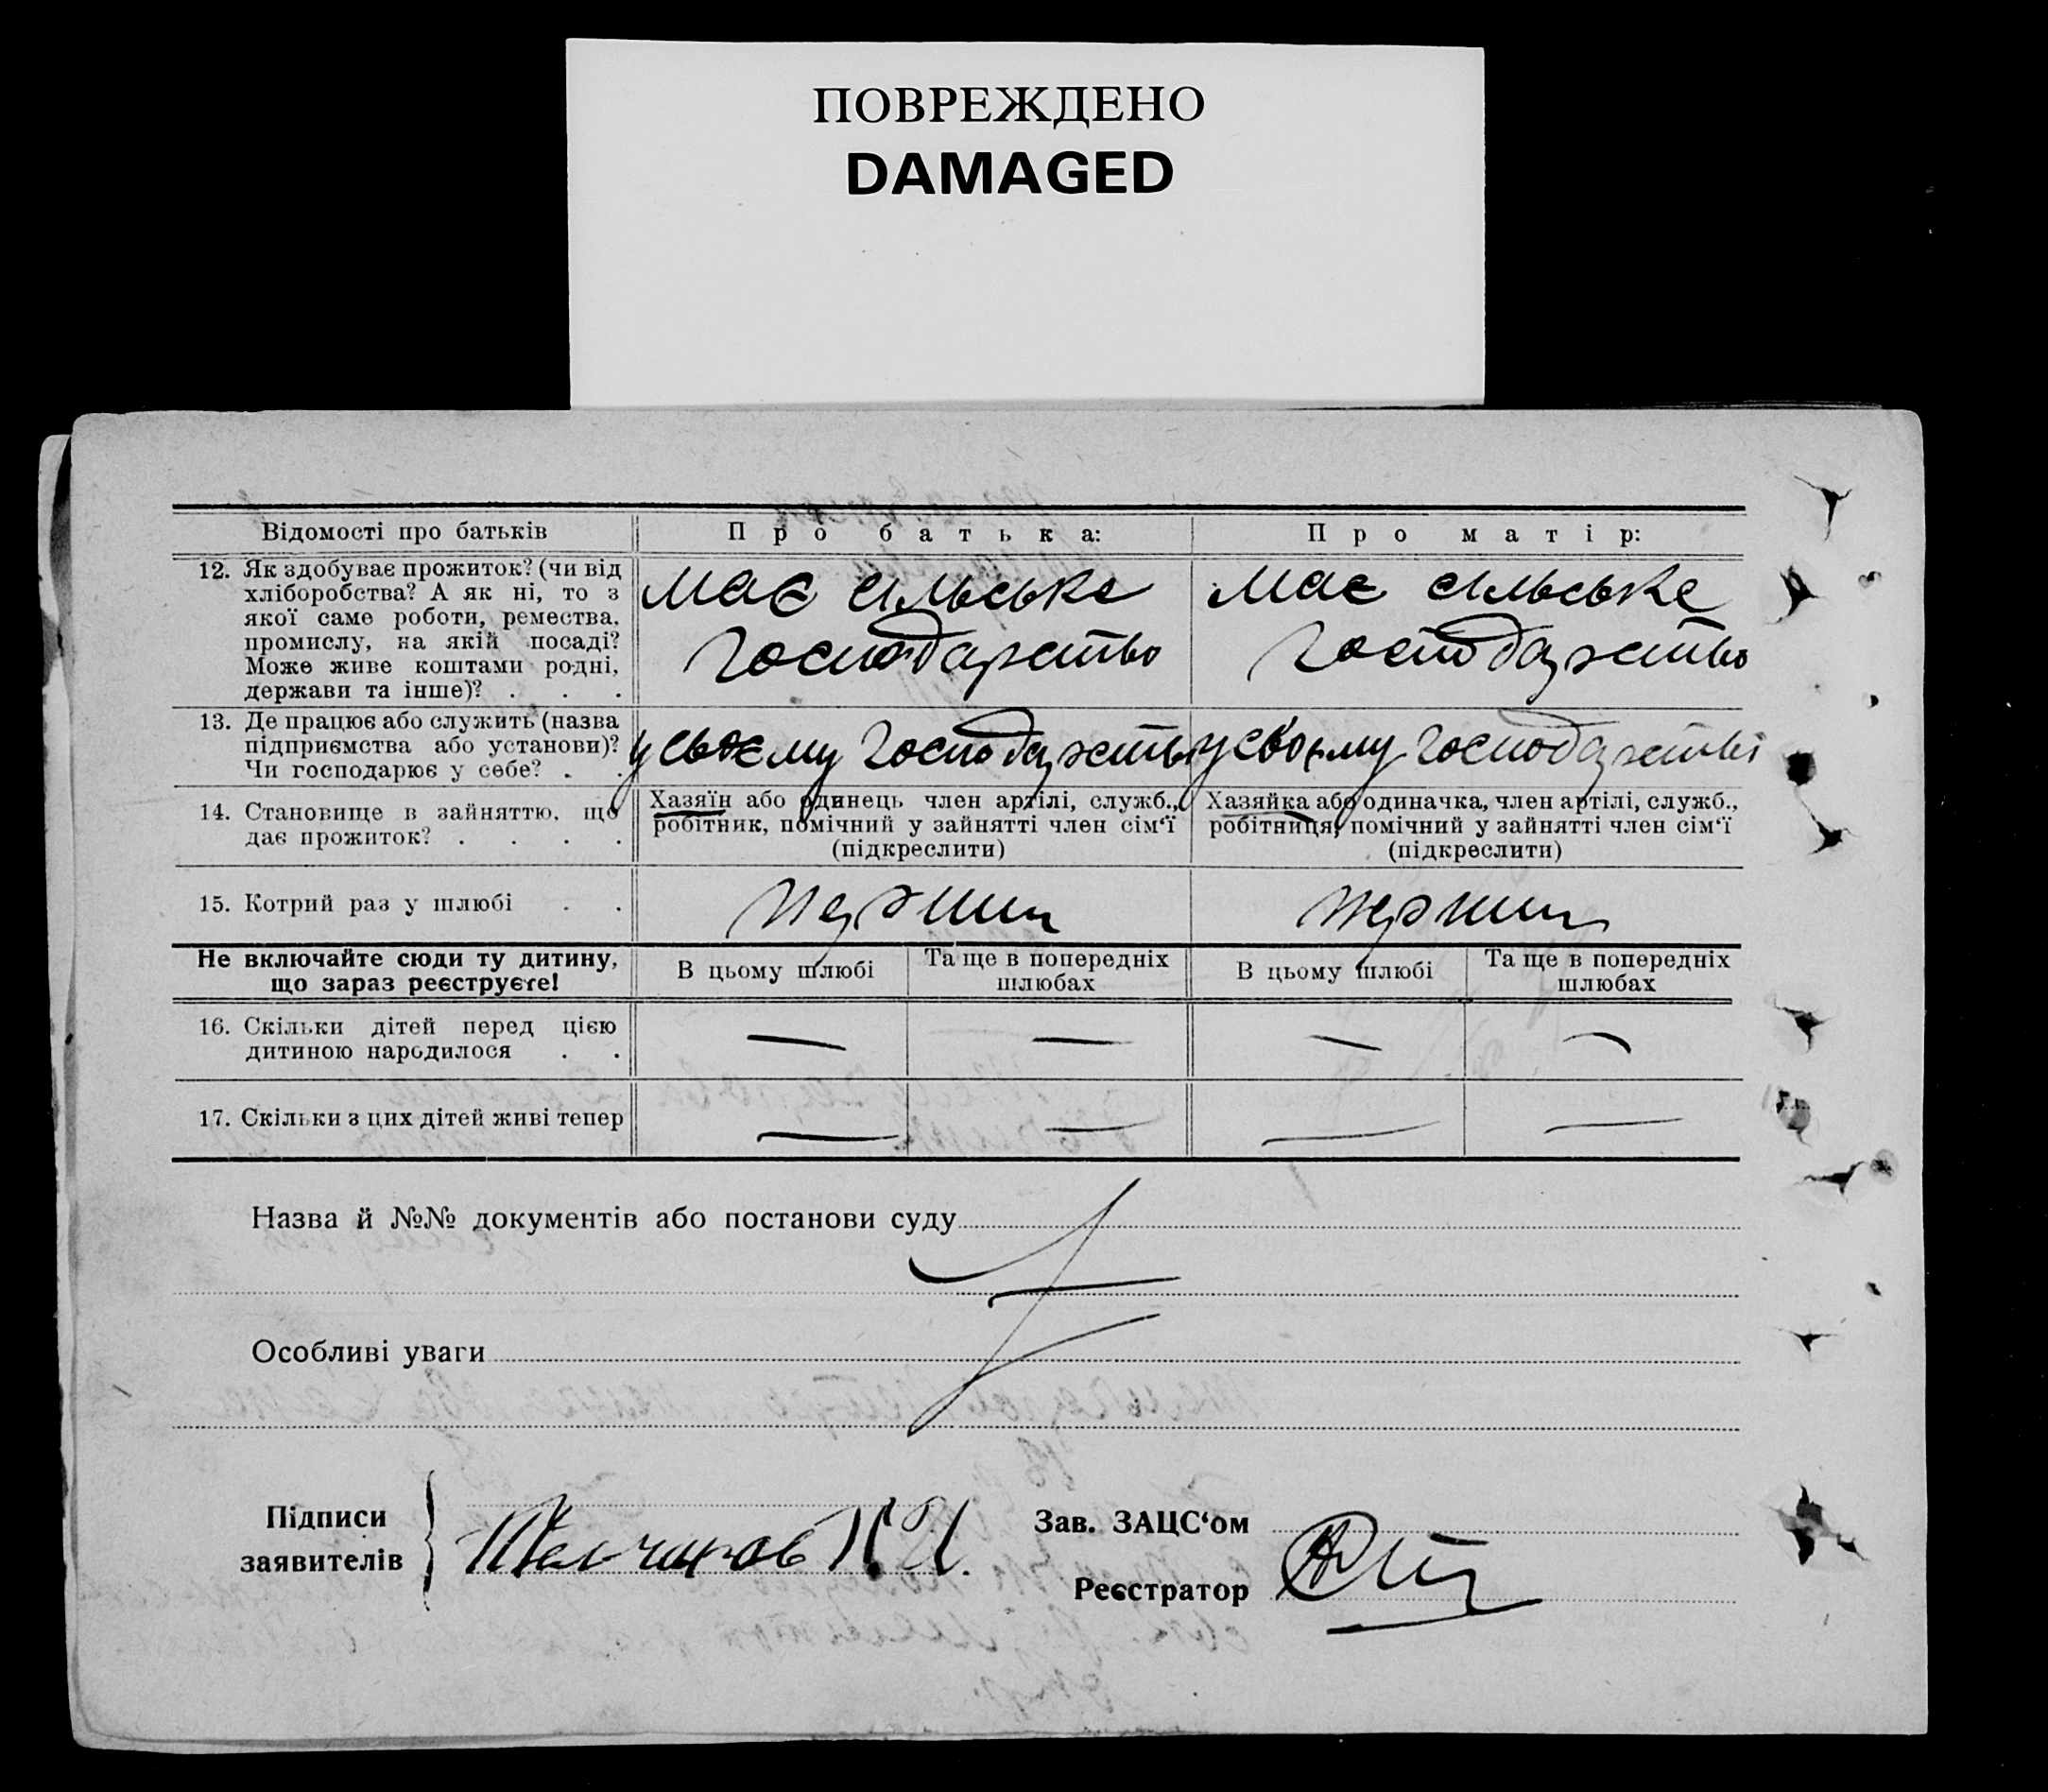 ПОВРЕЖДЕНО
DAMAGED
Відомості про батьків
Про батька:
Про матір:
12. Як здобуває прожиток? (чи від
хліборобства? А як ні, то з
якої саме роботи, ремества,
промислу, на якій посаді?
Може живе коштами родні,
держави та інше)? . . .
має сільське
господарство
має сільське
господарство
13. Де працює або служить (назва
підприємства або установи)?
Чи господарює у себе? . .
у своєму господарстві
у своєму господарстві
14. Становище в зайняттю, що
дає прожиток? . . . .
Хазяїн або одинець член артілі, служб.,
робітник, помічний у зайнятті член сім‘ї
(підкреслити)
Хазяйка або одиначка, член артілі, служб.,
робітниця, помічний у зайнятті член сім‘ї
(підкреслити)
15. Котрий раз у шлюбі . .
перший
перший
Не включайте сюди ту дитину,
що зараз реєструєте!
В цьому шлюбі
Та ще в попередніх
шлюбах
В цьому шлюбі
Та ще в попередніх
шлюбах
16. Скільки дітей перед цією
дитиною народилося . .
— — — —
17. Скільки з цих дітей живі тепер
— — — —
Назва й №№ документів або постанови суду
Особливі уваги
Підписи
заявителів
Зав. ЗАЦС‘ом
Реєстратор